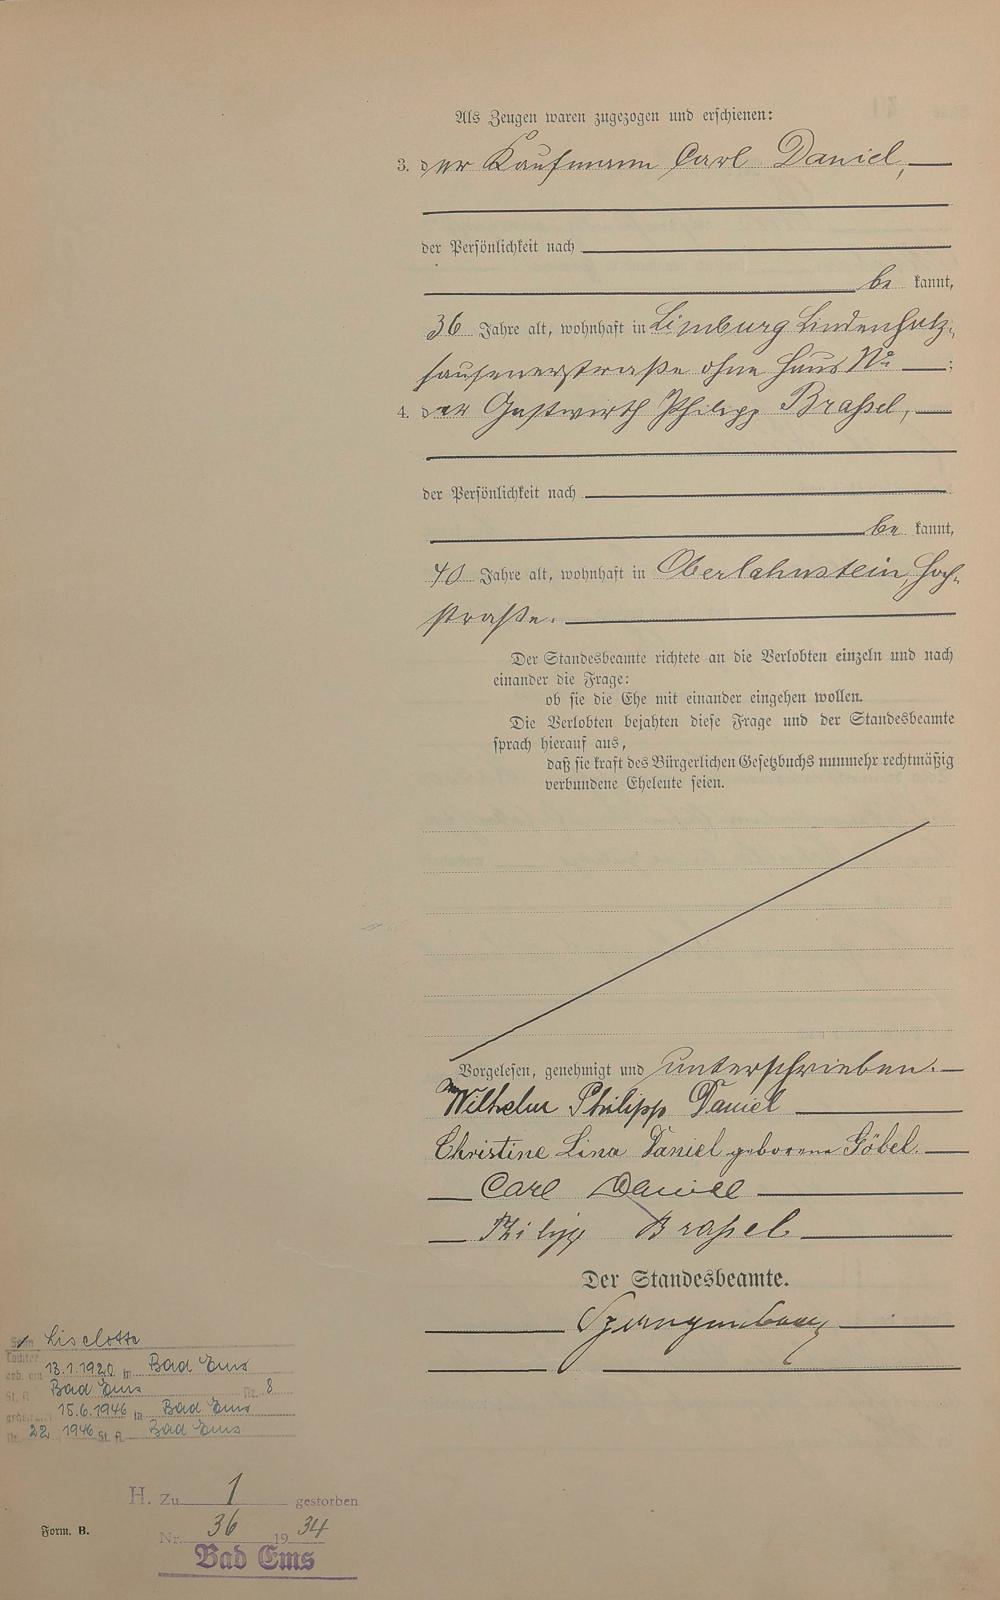 Als Zeugen waren zugezogen und erschienen:
3. der Kaufmann Carl Daniel,
der Persönlichkeit nach
be kannt,
36 Jahre alt, wohnhaft in Limburg Lindenholz-
hausenerstraße ohne Haus No ;
4. der Gastwirth Philipp Braßel,
der Persönlichkeit nach
be kannt,
40 Jahre alt, wohnhaft in Oberlahnstein, Hoch-
straße.
Der Standesbeamte richtete an die Verlobten einzeln und nach
einander die Frage:
ob sie die Ehe mit einander eingehen wollen.
Die Verlobten bejahten diese Frage und der Standesbeamte
sprach hierauf aus,
daß sie kraft des Bürgerlichen Gesetzbuchs nunmehr rechtmäßig
verbundene Eheleute seien.
Vorgelesen, genehmigt und unterschrieben.
Wilhelm Philipp Daniel
Christine Lina Daniel geborene Göbel.
Carl Daniel
Philipp Braßel
Der Standesbeamte.
Liselotte
Tochter
geb. am 13.1.1920 in Bad Ems
St. A. Bad Ems Nr. 8
geheiratet 15.6.1946 in Bad Ems
Nr. 22 1946 St. A. Bad Ems
H. Zu 1 gestorben
Nr. 36 1934
Bad Ems
Form. B.